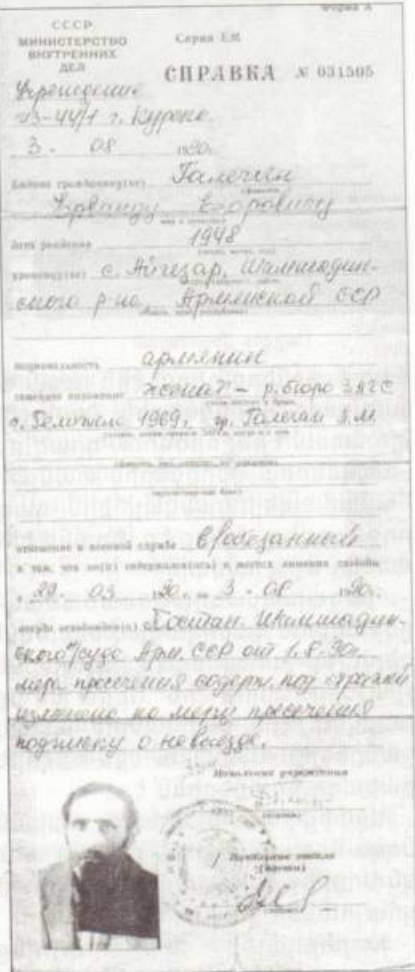 Форма А
СССР
МИНИСТЕРСТВО
ВНУТРЕННИХ
ДЕЛ
Серия ЕМ
СПРАВКА № 031505
Учреждение
ИЗ-44/1 г. Курска
3. 08 1990г.
Выдана гражданину(ке) Галечян
Ерванду Егоровичу
Дата рождения 1948
с. Айгедзар, Шамшадин-
ского р-на, Армянской ССР
национальность армянин
семейное положение женат - р. бюро ЗАГС
1969г. гр.
отношение к военной службе в/обязанный
в том, что он(а) содержался(ась) в местах лишения свободы
с 29. 03 1990г. по 3 - 08 1990г.
откуда освобождён(а) Постан. Шамшадин-
ского н/суда Арм. ССР от 1.8.90г.
мера пресечения содерж. под стражей
изменена на меру пресечения
подписку о невыезде.
Начальник учреждения
Начальник отдела
(части)